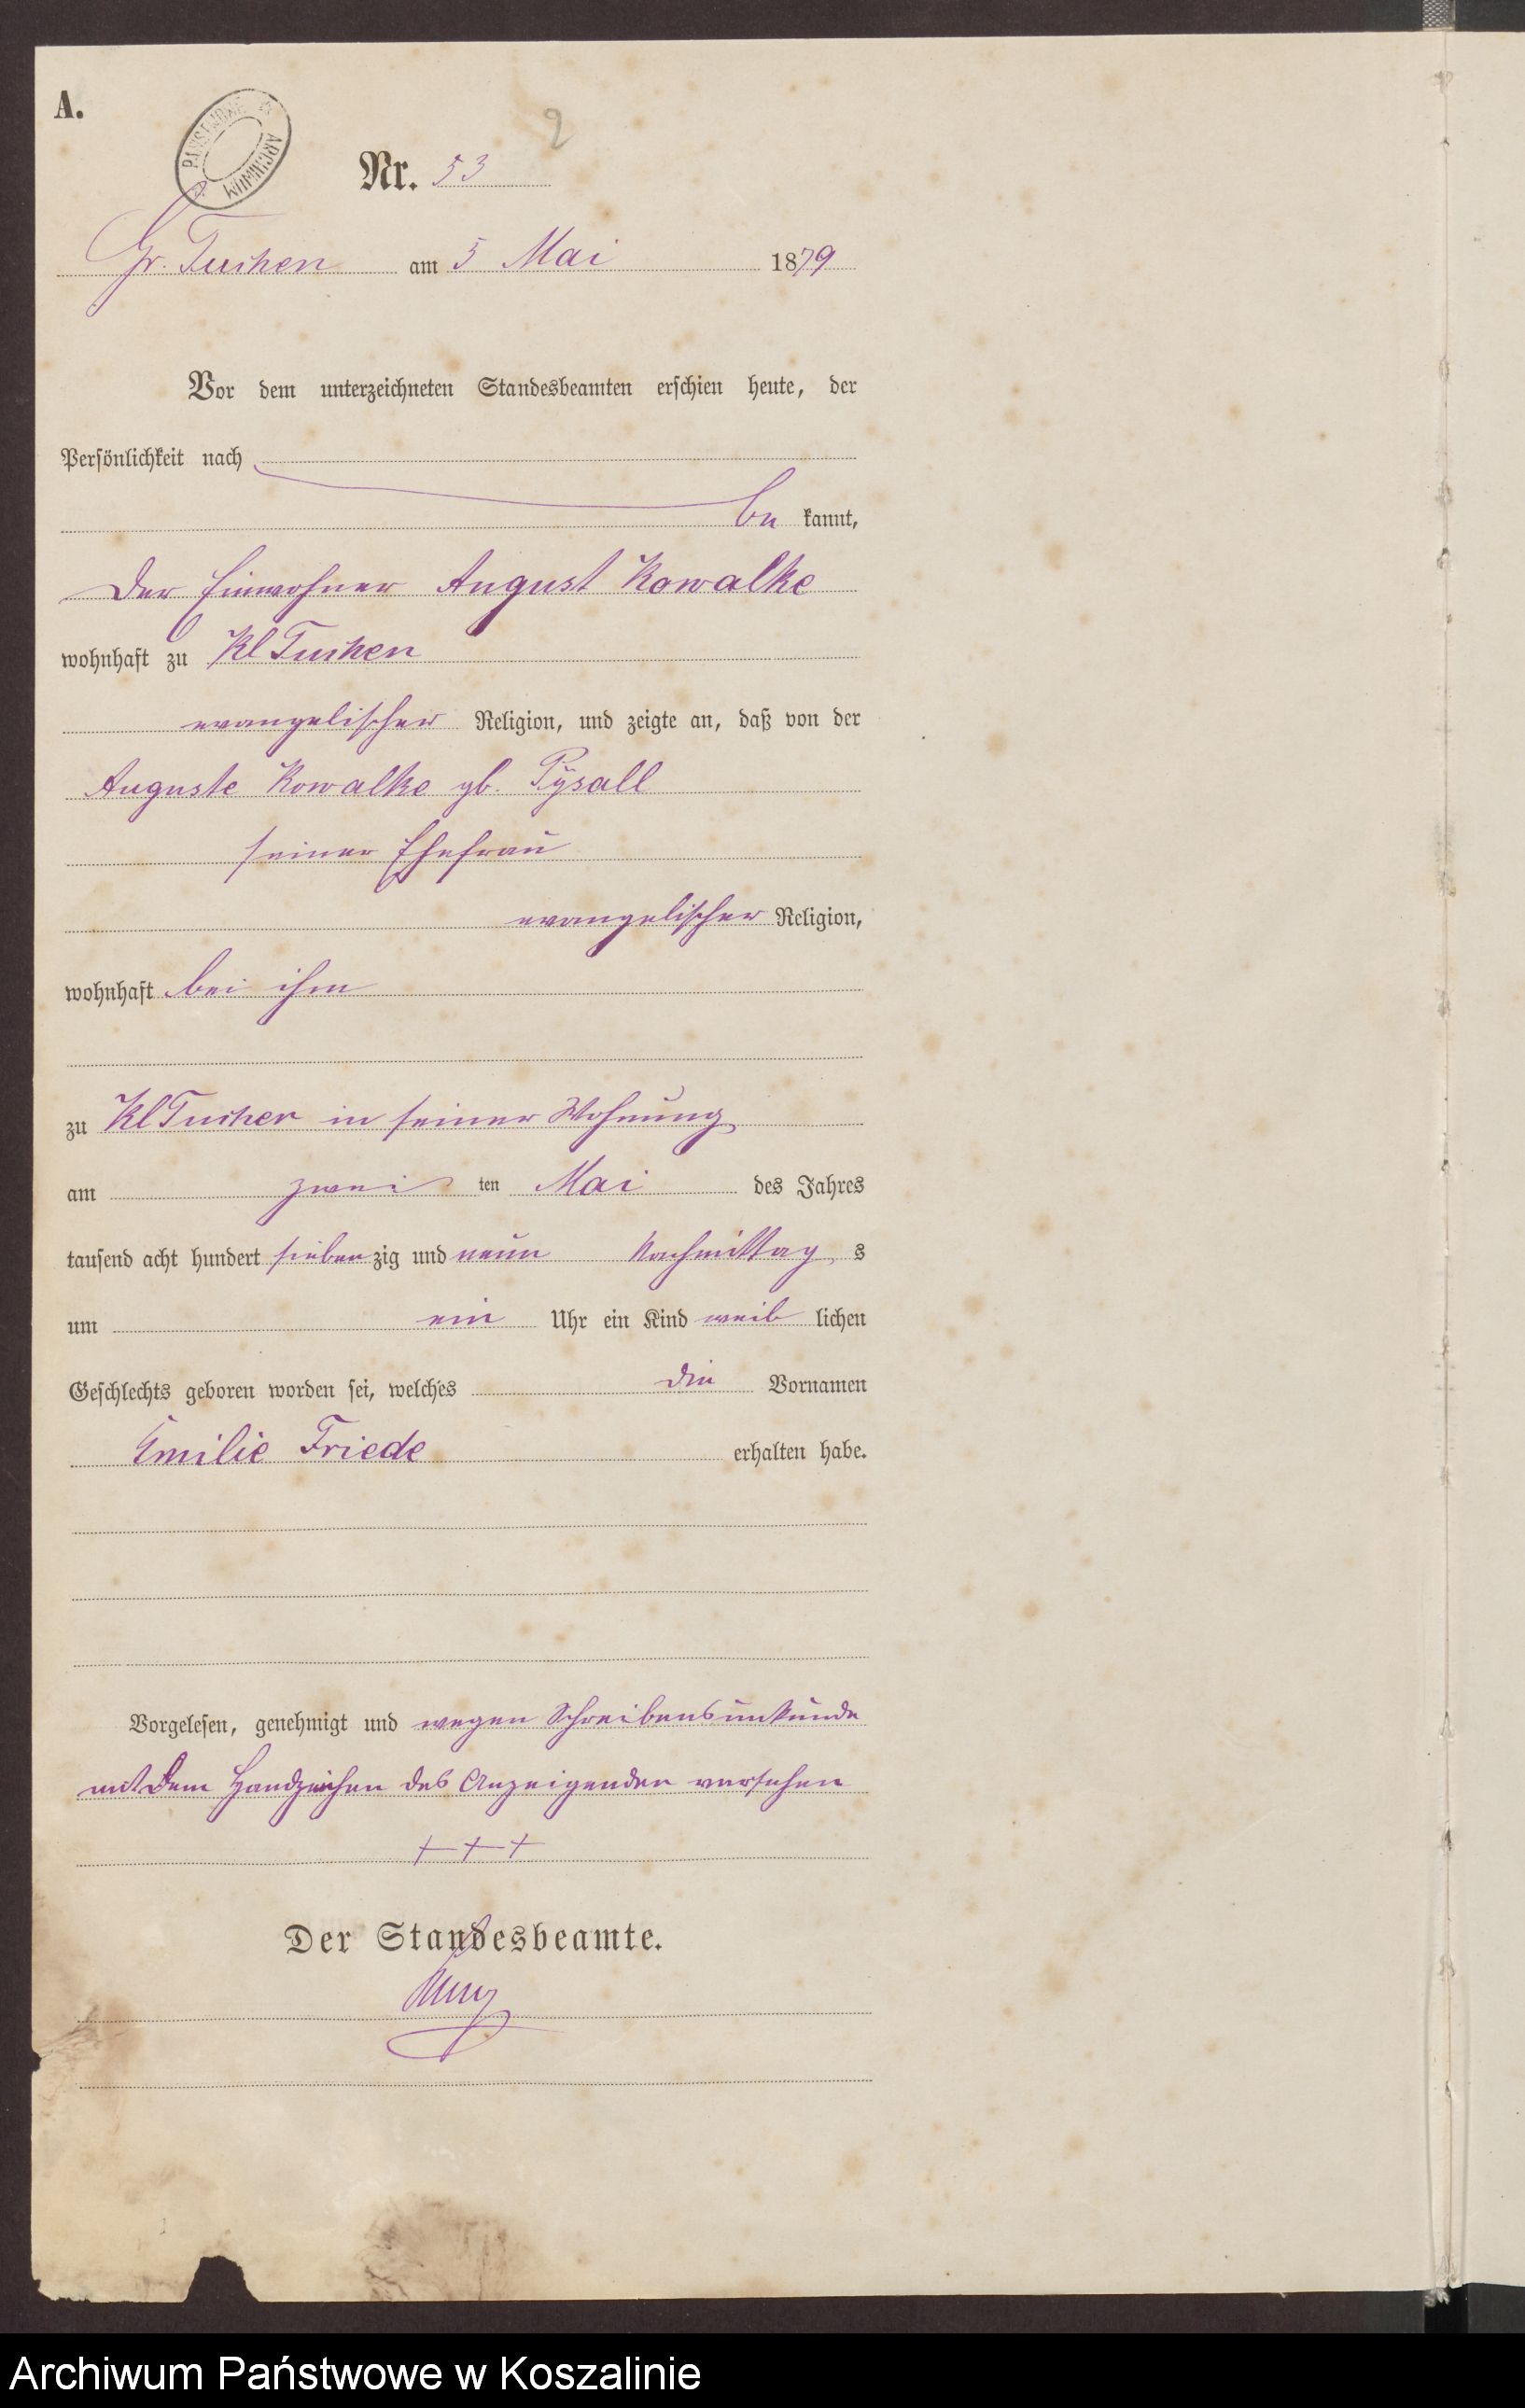 A.
PAŃSTWOWE ARCHIWUM
2
Nr. 53
Gr. Tuchen am 5 Mai 1879
Vor dem unterzeichneten Standesbeamten erschien heute, der
Persönlichkeit nach
be kannt,
der Einwohner August Kowalke
wohnhaft zu Kl Tuchen
evangelischer Religion, und zeigte an, daß von der
Auguste Kowalke gb. Pysall
seiner Ehefrau
evangelischer Religion,
wohnhaft bei ihm
zu Kl Tuchen in seiner Wohnung
am zwei ten Mai des Jahres
tausend acht hundert sieben zig und neun Nachmittag s
um ein Uhr ein Kind weib lichen
Geschlechts geboren worden sei, welches die Vornamen
Emilie Friede erhalten habe.
Vorgelesen, genehmigt und wegen Schreibensunkunde
mit dem Handzeichen des Anzeigenden versehen
+++
Der Standesbeamte.
Archiwum Państwowe w Koszalinie